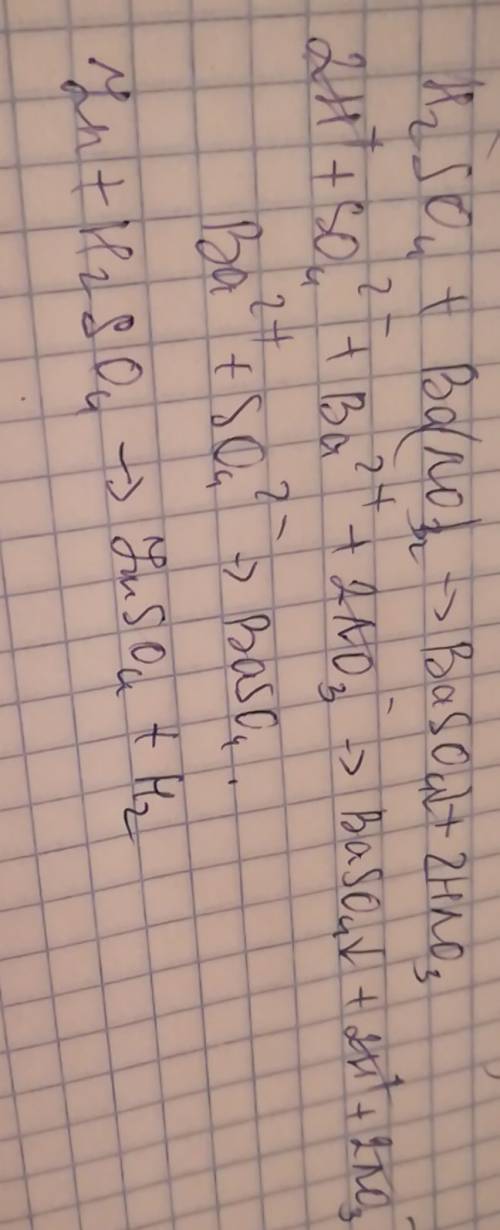 H₂SO₄ + Ba(NO₃)₂ → BaSO₄↓ + 2HNO₃
2H⁺ + SO₄²⁻ + Ba²⁺ + 2NO₃⁻ → BaSO₄↓ + 2H⁺ + 2NO₃⁻
Ba²⁺ + SO₄²⁻ → BaSO₄.
Zn + H₂SO₄ → ZnSO₄ + H₂